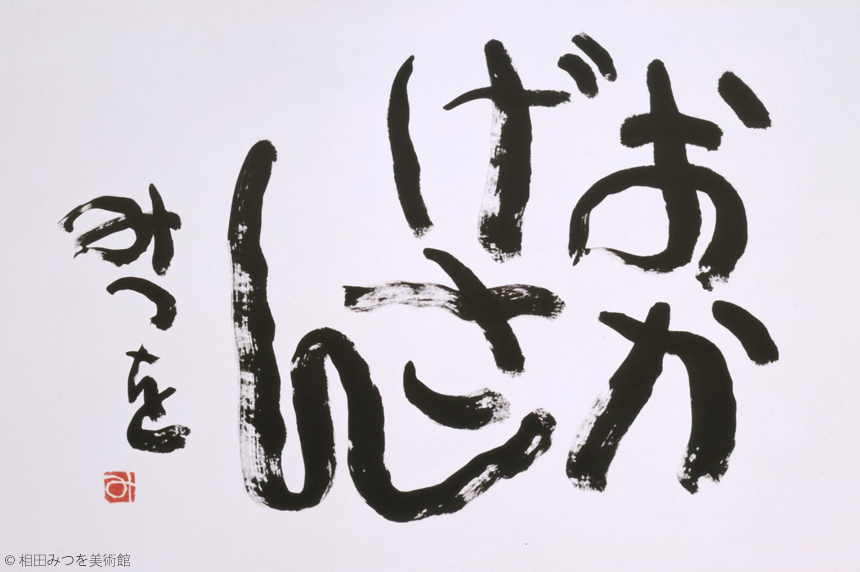 おか
げさ
ん
みつを
み
© 相田みつを美術館